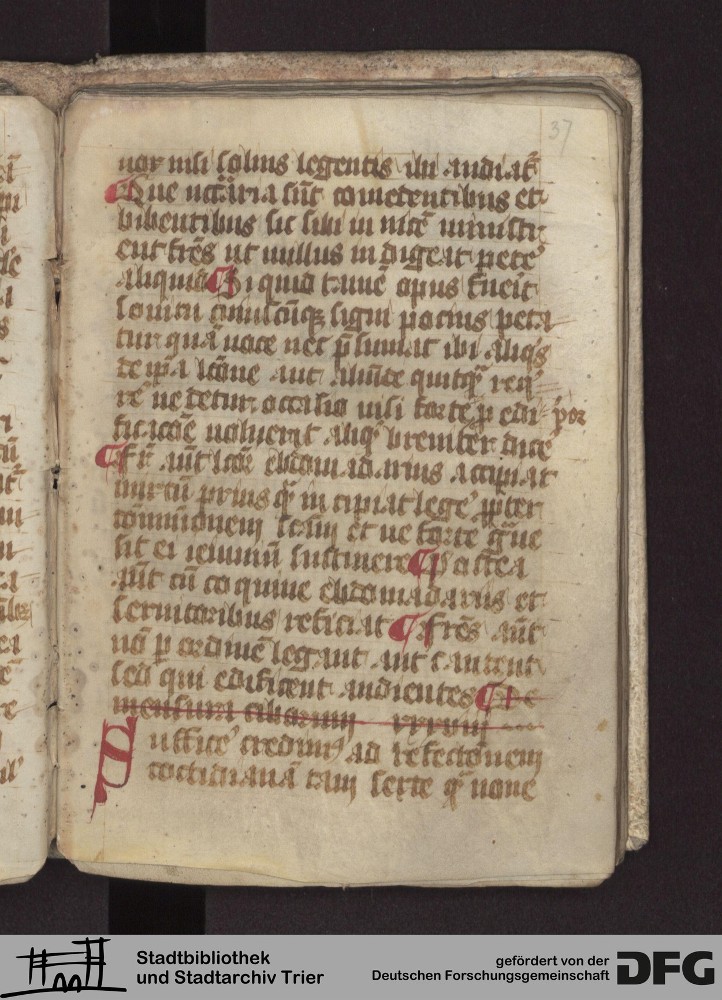 37
uox nisi solius legentis ibi audiat̃
Que nccãria sũt comedentibus et
bibentibus sic sibi in uicẽ ministr
ent frẽs ut nullus indigeat petẽ
aliquid Si quid tamẽ opus fueĩt
sonitu cuiuscũq signi pocius peta
tur quã uoce nec p̃sumat ibi aliqs
de ipa lcõne aut aliũde quicq̃ req
rẽ ne detur occasio nisi forte p edi por
ficacõe uoluerit aliq breuiter dicẽ
fr̃ aũt lcõr ebdomadarius accipiat
mixtũ prius q̃ incipiat legẽ ppter
cõmunionem sc̃am et ne forte g̃ue
sit ei ieiuniũ sustinere Postea
aũt cũ coquine ebdomadariis et
seruitoribus reficiat Frẽs aũt
nõ p ordinẽ legant aut cantent
sed qui edificent audientes De
mensura cibarum xxxviiii
Sufficẽ credimꝰ ad refectõnem
cottidianã tam sexte q̃ none
Stadtbibliothek
und Stadtarchiv Trier
gefördert von der
Deutschen Forschungsgemeinschaft
DFG